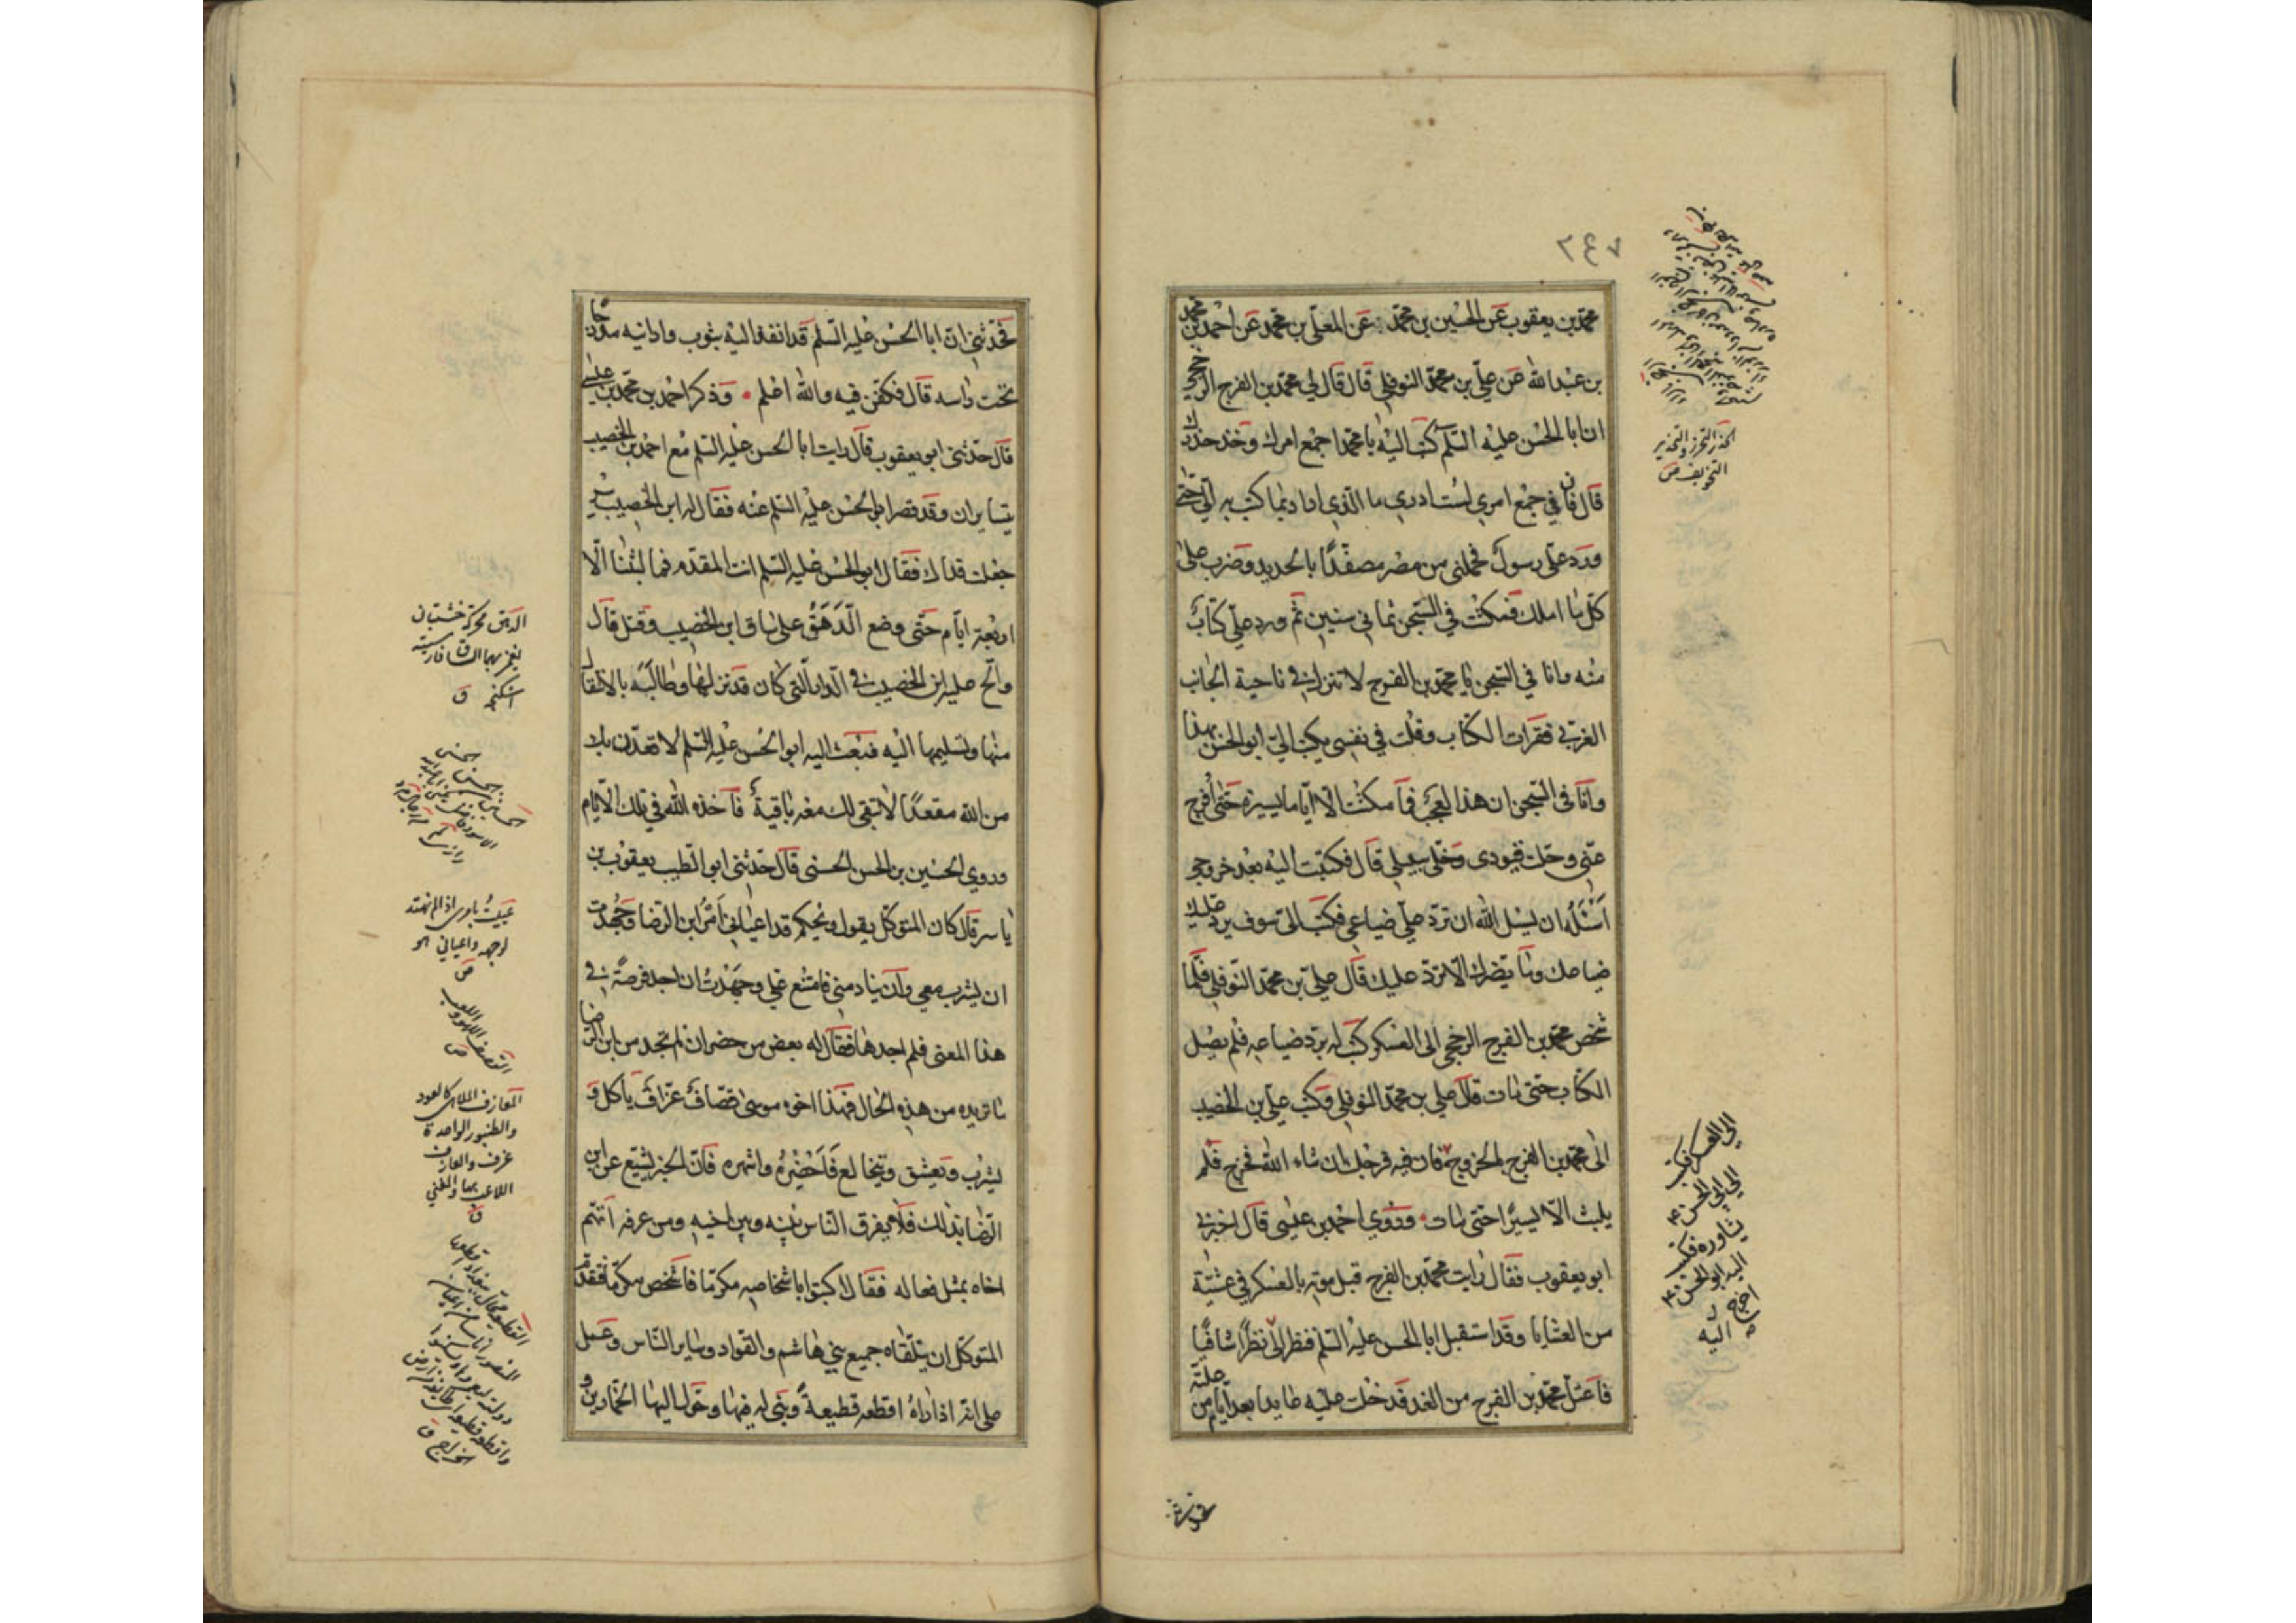 ٢٤٧
محمد بن يعقوب عن الحسين بن محمد عن المعلى بن محمد عن احمد بن محمد
بن عبد الله عن علي بن محمد النوفلي قال قال لي محمد بن الفرج الرخجي
ان ابا الحسن عليه السلم كتب اليه يا محمد اجمع امرك وخذ حذرك
قال فانا في جمع امري لست ادري ما الذي اراد بما كتب به الي حتى
ورد علي رسول فحملني من مصر مصفدا بالحديد وضرب على
كل ما املك فمكثت في السجن ثماني سنين ثم ورد علي كتاب
منه وانا في السجن يا محمد بن الفرج لا تنزل في ناحية الجانب
الغربي فقرات الكتاب وقلت في نفسي يكتب الي ابو الحسن بهذا
وانا في السجن ان هذا لعجب فما مكثت الا اياما يسيرة حتى افرج
عني وحلت قيودي وخلي سبيلي قال فكتبت اليه بعد خروجي
اسئله ان يسئل الله ان ترد علي ضياعي فكتب الي سوف يرد عليك
ضياعك وما يضرك الا ترد عليك قال علي بن محمد النوفلي فلما
شخص محمد بن الفرج الرخجي الى العسكر كتب له برد ضياعه فلم يصل
الكتاب حتى مات قال علي بن محمد النوفلي وكتب علي بن الخضيب
الى محمد بن الفرج بالخروج فان فيه فرجك ان شاء الله فخرج فلم
يلبث الا يسيرا حتى مات وروي احمد بن عيسى قال اخبرني
ابو يعقوب فقال رايت محمد بن الفرج قبل موته بالعسكر في عشية
من العشايا وقد استقبل ابا الحسن عليه السلم فنظر الي نظرا شافيا
فاعتل محمد بن الفرج من الغد فدخلت عليه عايدا بعد ايام من علته
الحذر التحرز والتحذير
التخويف ص
الى العسكر فكتب
الى ابي الحسن ع
يشاوره فكتب
اليه ابو الحسن ع
اخرج
اليه
فحدثني
فحدثني ان ابا الحسن عليه السلم قد انفذ اليه بثوب وارانيه مدرجا
تحت راسه قال فكفن فيه والله اعلم وذكر احمد بن محمد بن عيسى
قال حدثني ابو يعقوب قال رايت ابا الحسن عليه السلم مع احمد بن الخصيب
يتسايران وقد قصر ابو الحسن عليه السلم عنه فقال له ابن الخصيب سر
جعلت فداك فقال ابو الحسن عليه السلم انت المقدم فما لبثنا الا
اربعة ايام حتى وضع الدهق على ساق ابن الخضيب وقتل قال
والح عليه ابن الخضيب في الدار التي كان قد نزلها وطالبه بالانتقال
منها وتسليمها اليه فبعث اليه ابو الحسن عليه السلم لاقعدن بك
من الله مقعدا لا تبقى لك معه باقية فاخذه الله في تلك الايام
وروي الحسين بن الحسن الحسني قال حدثني ابو الطيب يعقوب بن
ياسر قال كان المتوكل يقول ويحكم قد اعياني امر ابن الرضا وجهدت
ان يشرب معي وان ينادمني فامتنع علي وجهدت ان اجد فرصة في
هذا المعنى فلم اجدها فقال له بعض من حضر ان لم تجد من ابن الرضا
ما تريده من هذه الحال فهذا اخوه موسى قصاف عزاف ياكل و
يشرب ويعشق ويتخالع فاحضره واشهره فان الخبر يشيع عن ابن
الرضا بذلك فلا يفرق الناس بينه وبين اخيه ومن عرفه اتهم
اخاه بمثل فعاله فقال اكتبوا باشخاصه مكرما فاشخص مكرما فتقدم
المتوكل ان يتلقاه جميع بني هاشم والقواد وساير الناس وعمل
على انه اذا راه اقطعه قطيعة وبنى له فيها وحول اليها الخمارين و
الدهق محركة خشبتان
يغمز بهما الساق فارسيته
اشكنجه ق
عييت بامري اذا لم تهتد
لوجهه واعياني هو
ص
القصف اللهو واللعب
ص
المعازف الملاهي كالعود
والطنبور الواحدة
عزف والعازف
اللاعب بها والمغني
ق